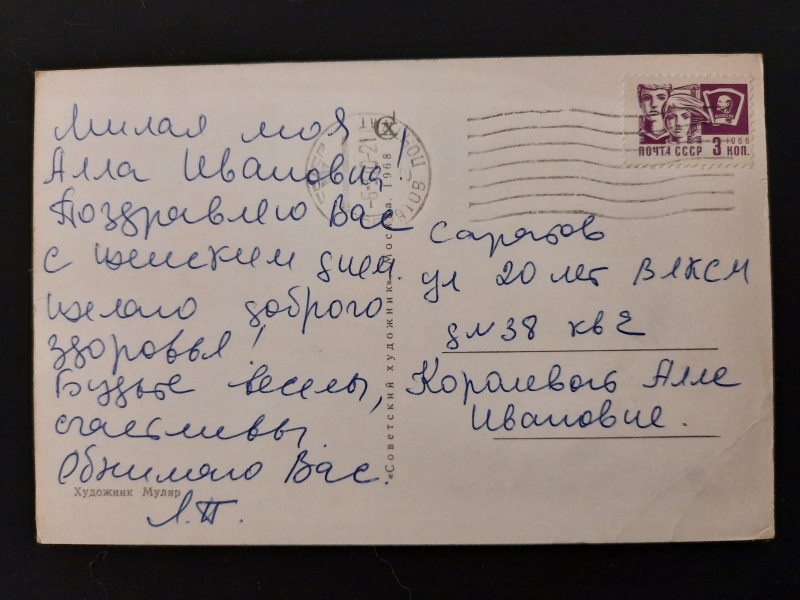 Милая моя
Алла Ивановна!
Поздравляю Вас
с женским днем.
Желаю доброго
здоровья!
Будьте веселы,
счастливы.
Обнимаю Вас.
Л.П.
Художник Муляр
«Советский художник». Москва. 1968
ПОЧТА СССР 3 КОП.
1966
ВЛКСМ
Саратов
ул 20 лет ВЛКСМ
д №38 кв 2
Королевой Алле
Ивановне.